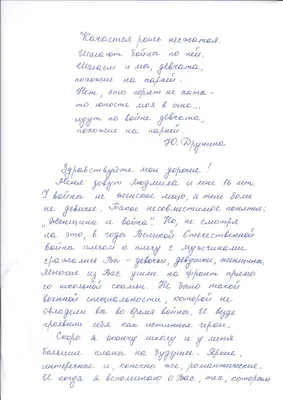 Качается рожь несжатая.
Шагают бойцы по ней.
Шагаем и мы, девчата,
похожие на парней.
Нет, это горят не хаты -
то юность моя в огне...
идут по войне девчата,
похожие на парней.
Ю. Друнина
Здравствуйте мои дорогие!
Меня зовут Людмила и мне 16 лет.
У войны не женское лицо, а тем более
не девичье. Такое несовместимое понятие:
"Женщина и война". Но, не смотря
на это, в годы Великой Отечественной
войны плечом к плечу с мужчинами
сражались Вы - девочки, девушки, женщины.
Многие из Вас ушли на фронт прямо
со школьной скамьи. Не было такой
военной специальности, которой не
овладели вы во время войны. И везде
проявили себя как истинные герои.
Скоро я окончу школу и у меня
большие планы на будущее. Яркие,
интересные и, конечно же, романтические.
И когда я вспоминаю о Вас, тех, которым